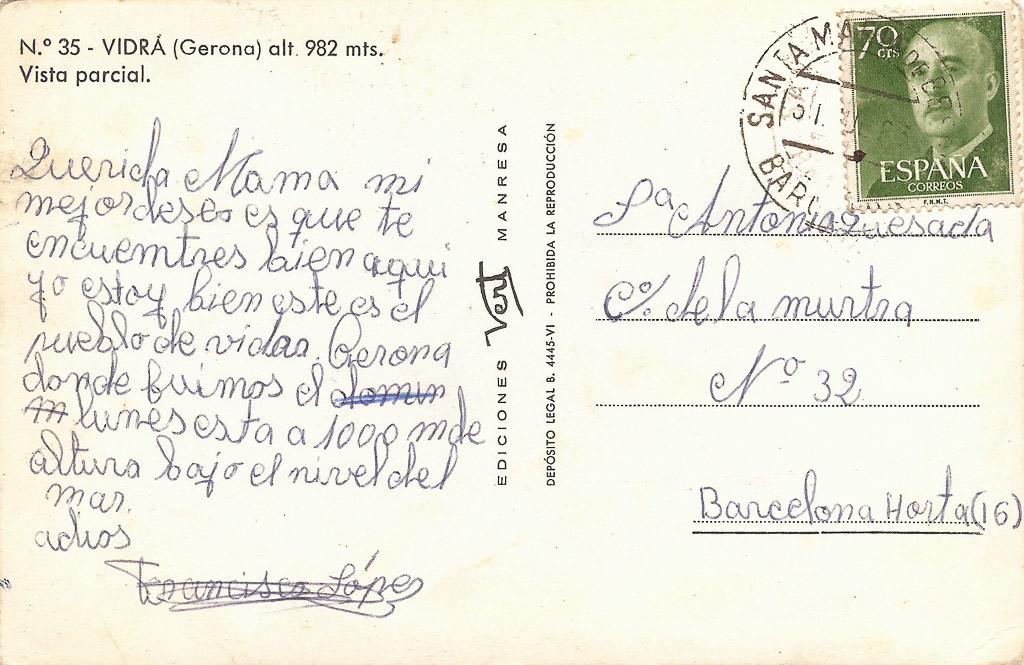 N.º 35 - VIDRÁ (Gerona) alt. 982 mts.
Vista parcial.
Querida Mama mi
mejor deseo es que te
encuemtres bien aqui
yo estoy bien este es el
pueblo de vidas. Gerona
donde fuimos el domin
m lunes esta a 1000 m de
altura bajo el nivel del
mar.
adios
Francisco López
EDICIONES Vert MANRESA
DEPÓSITO LEGAL B. 4445-VI - PROHIBIDA LA REPRODUCCIÓN
70 CTS
ESPAÑA
CORREOS
F.N.M.T.
SANTA MA
BARC
Sª Antonia Quesada
Cº. de la murtra
Nº 32
Barcelona Horta (16)